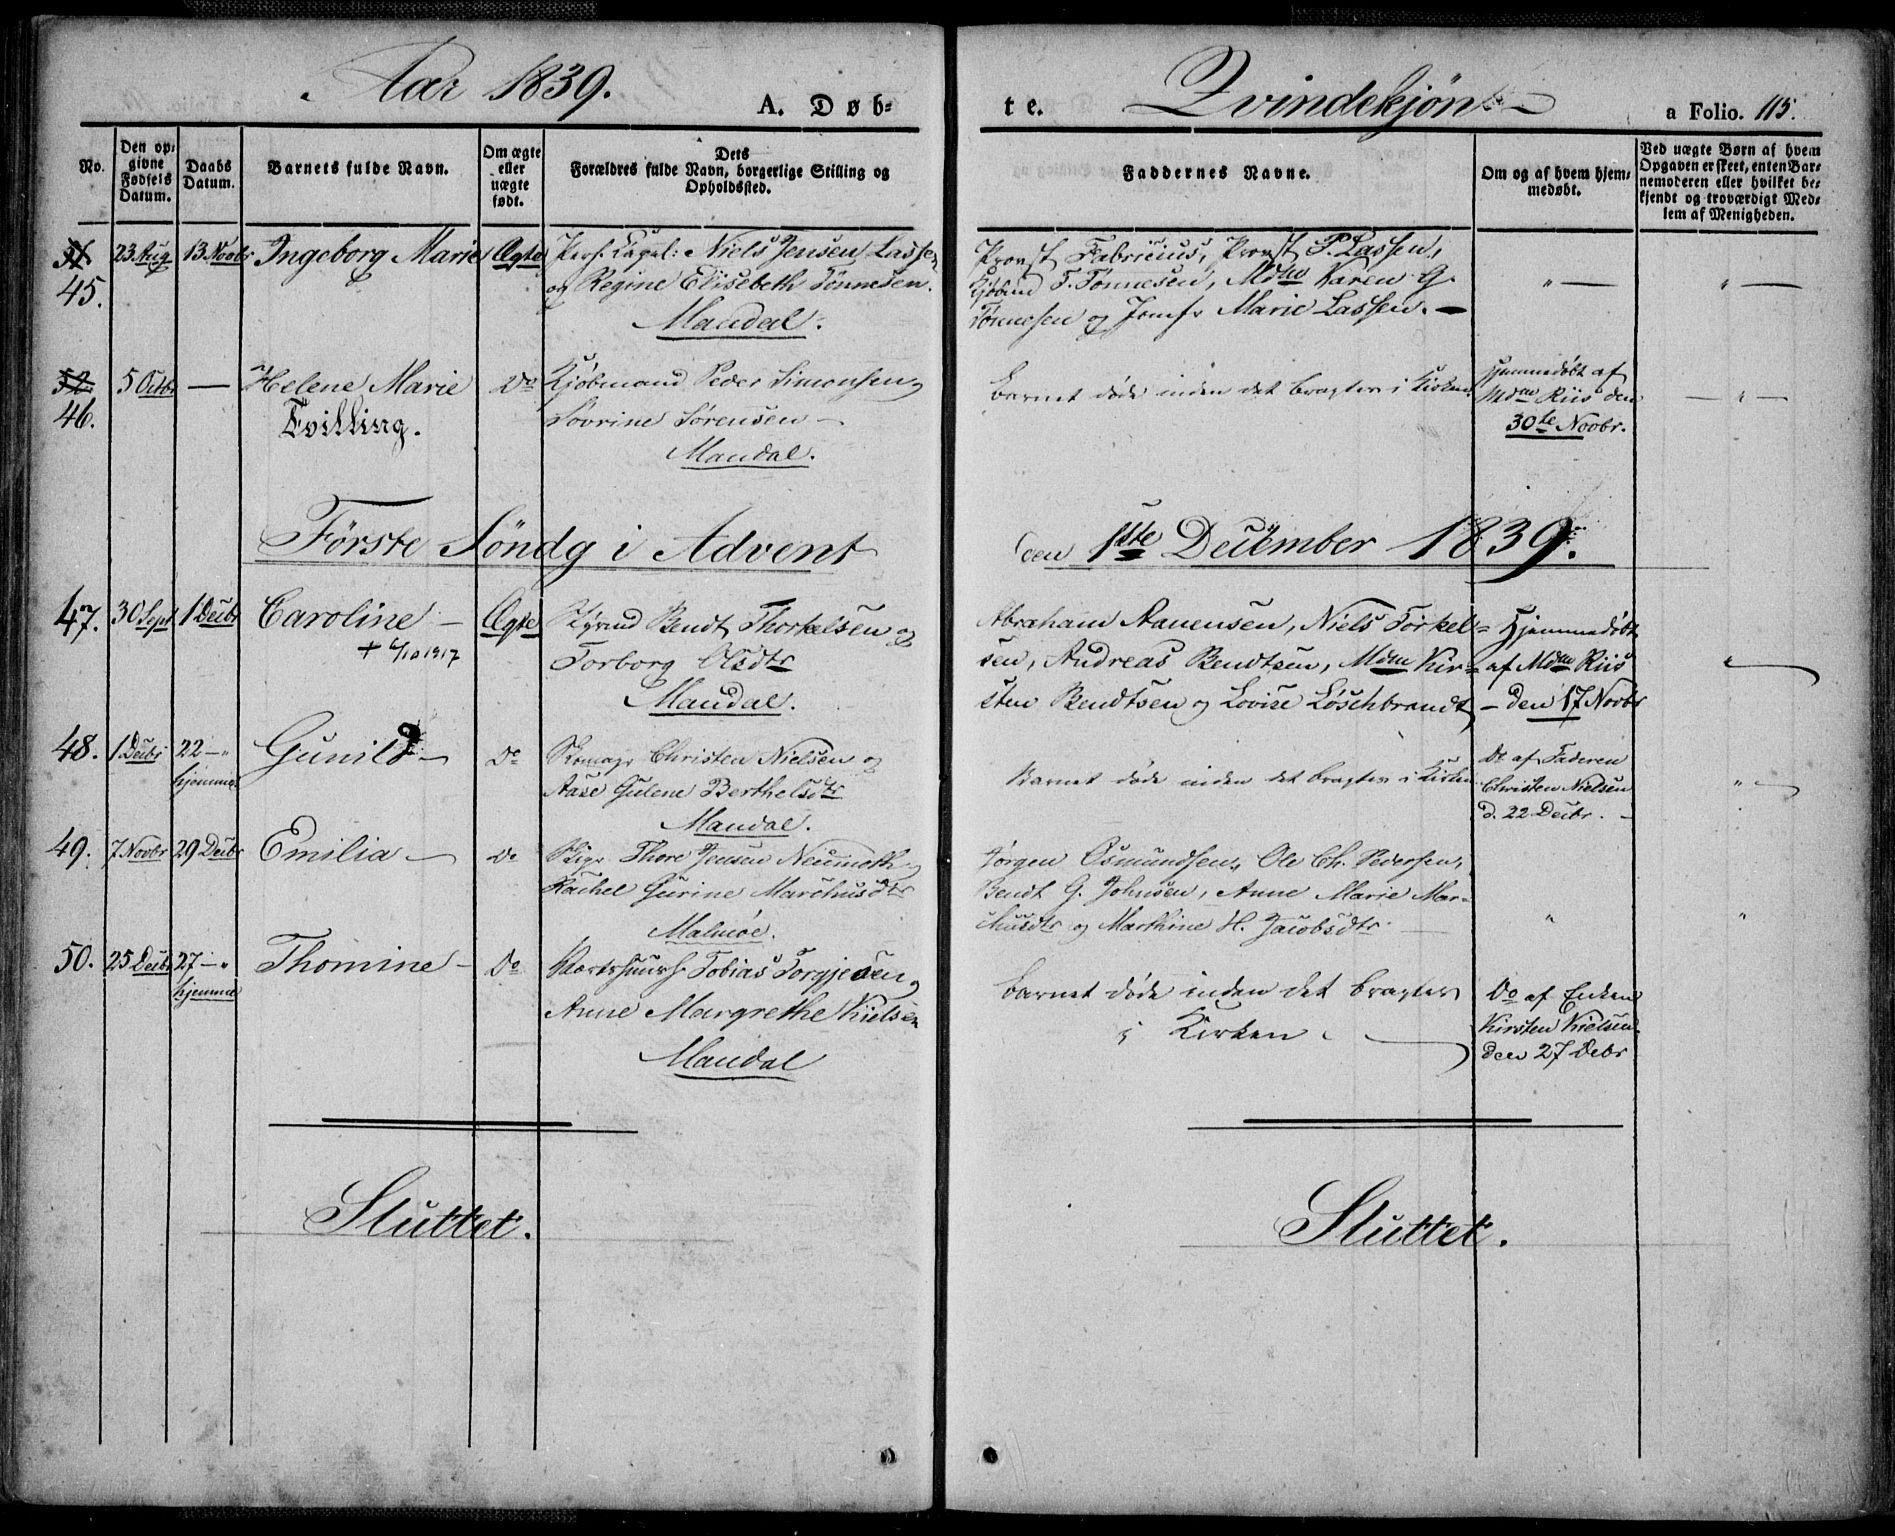 Aar 1839.
A. Døb=
te.
Qvindekjøn
a Folio. 115.
No.
Den op=
givne
Fødsels
Datum.
Daabs
Datum.
Barnets fulde Navn.
Om ægte
eller
uægte
født.
Dets
Forældres fulde Navn, borgerlige Stilling og
Opholdssted.
Faddernes Navne.
Om og af hvem hjem=
medøbt.
Ved uægte Børn af hvem
Opgaven er skeet, enten Bar=
nemoderen eller hvilket be=
kjendt og troværdigt Med=
lem af Menigheden.
51
45.
23 Aug
13 Novbr
Ingeborg Marie
Ægte
Pers: Capel: Niels Jensen Lassen
og Regine Elisebeth Tönnesen.
Mandal.
Provst Fabricius, Provst P. Lassen,
Kjøbmd T. Tönnesen, Mdm Karen G.
Tönnesen og Jomfr Marie Lassen. —
" —
" —
52.
46.
5 Octbr
—
Helene Marie
Tvilling.
Do
Kjøbmand Peder Simonsen og
Sovrine Sørensen —
Mandal.
Barnet døde inden det bragtes i Kirken
Hjemmedøbt af
Mdm Riis den
30te Novbr.
— " —
Første Söndg i Advent
den 1ste December 1839.
47.
30 Sept
1 Decbr
Caroline —
+ 6/10 1917
Ægte
Bendt Thorkelsen og
Torborg Olsdtr
Mandal.
Abraham Aanensen, Niels Torkel=
sen, Andreas Bendtsen, Mdm Kir=
sten Bendtsen og Lovise Löschbrandt
Hjemmedøbt
af Mdm Riis
— den 17 Novbr
"
48.
1 Decbr
22 — "
hjemme
Gunild —
Do
Skomagr Christen Nielsen og
Aase Gulene Berthelsdtr
Mandal.
Barnet døde inden det bragtes i Kirken
Do af Faderen
Christen Nielsen
d. 22 Decbr. —
"
49.
7 Novbr
29 Decbr
Emilia —
Do
Thore Jensen Neumoth og
Rachel Gurine Marchusdtr
Malmöe.
Jørgen Osmundsen, Ole Ch. Pedersen,
Bendt G. Johnsen, Anne Marie Mar=
chusdtr og Marthine H. Jacobsdtr. —
"
"
50.
25 Decbr
27 — "
hjemme
Thomine —
Do
Tobias Torgjesen og
Anne Margrethe Nielsen
Mandal
Barnet døde inden det bragtes
i Kirken.
Do af Enken
Kirsten Nielsen
den 27 Debr
Sluttet.
Sluttet.